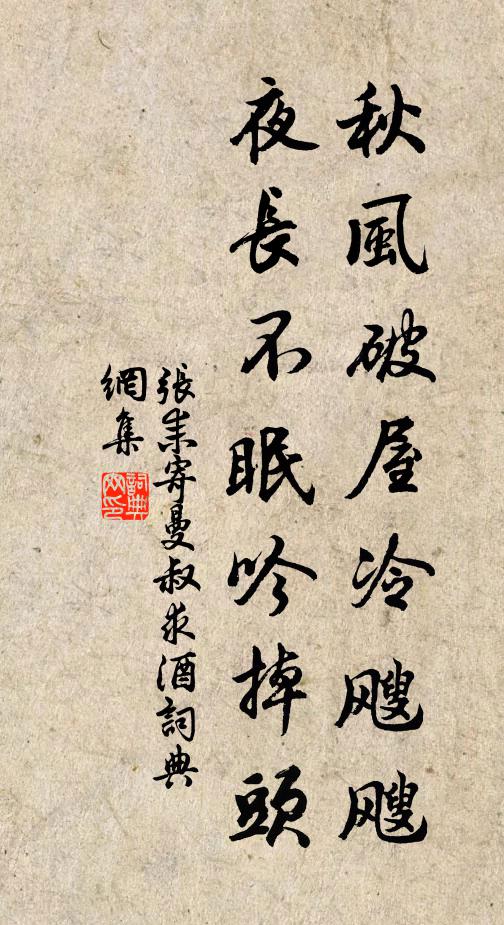 秋風破屋冷颼颼
夜長不眠吟掉頭
張耒寄曼叔求酒詞典
網集
詞典網印